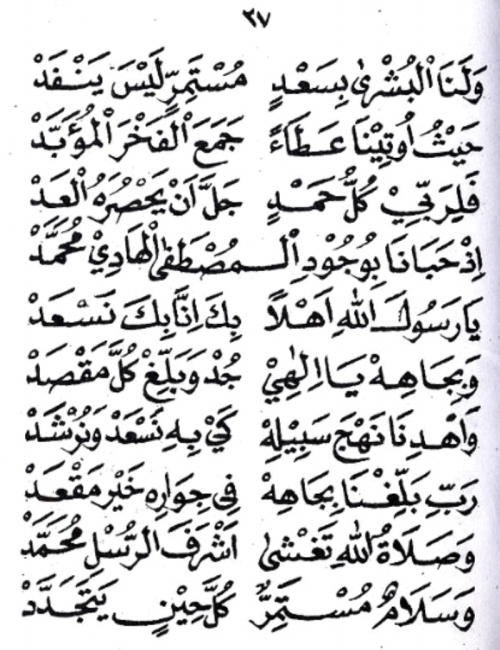 ٢٧
وَلَنَا الْبُشْرٰى بِسَعْدٍ مُسْتَمِرٍّ لَيْسَ يَنْفَدْ
حَيْثُ اُوتِيْنَا عَطَاءً جَمَعَ الْفَخْرَ الْمُؤَبَّدْ
فَلِرَبِّيْ كُلُّ حَمْدٍ جَلَّ اَنْ يَحْصُرَهُ الْعَدْ
اِذْ حَبَانَا بِوُجُوْدِ الْمُصْطَفٰى الْهَادِيْ مُحَمَّدْ
يَا رَسُوْلَ اللهِ اَهْلًا بِكَ اِنَّا بِكَ نَسْعَدْ
وَبِجَاهِهْ يَا اِلٰهِيْ جُدْ وَبَلِّغْ كُلَّ مَقْصَدْ
وَاهْدِنَا نَهْجَ سَبِيْلِهْ كَيْ بِهِ نَسْعَدْ وَنُرْشَدْ
رَبِّ بَلِّغْنَا بِجَاهِهْ فِى جِوَارِهِ خَيْرَ مَقْعَدْ
وَصَلَاةُ اللهِ تَغْشٰى اَشْرَفَ الرُّسْلِ مُحَمَّدْ
وَسَلَامٌ مُسْتَمِرٌّ كُلَّ حِيْنٍ يَتَجَدَّدْ